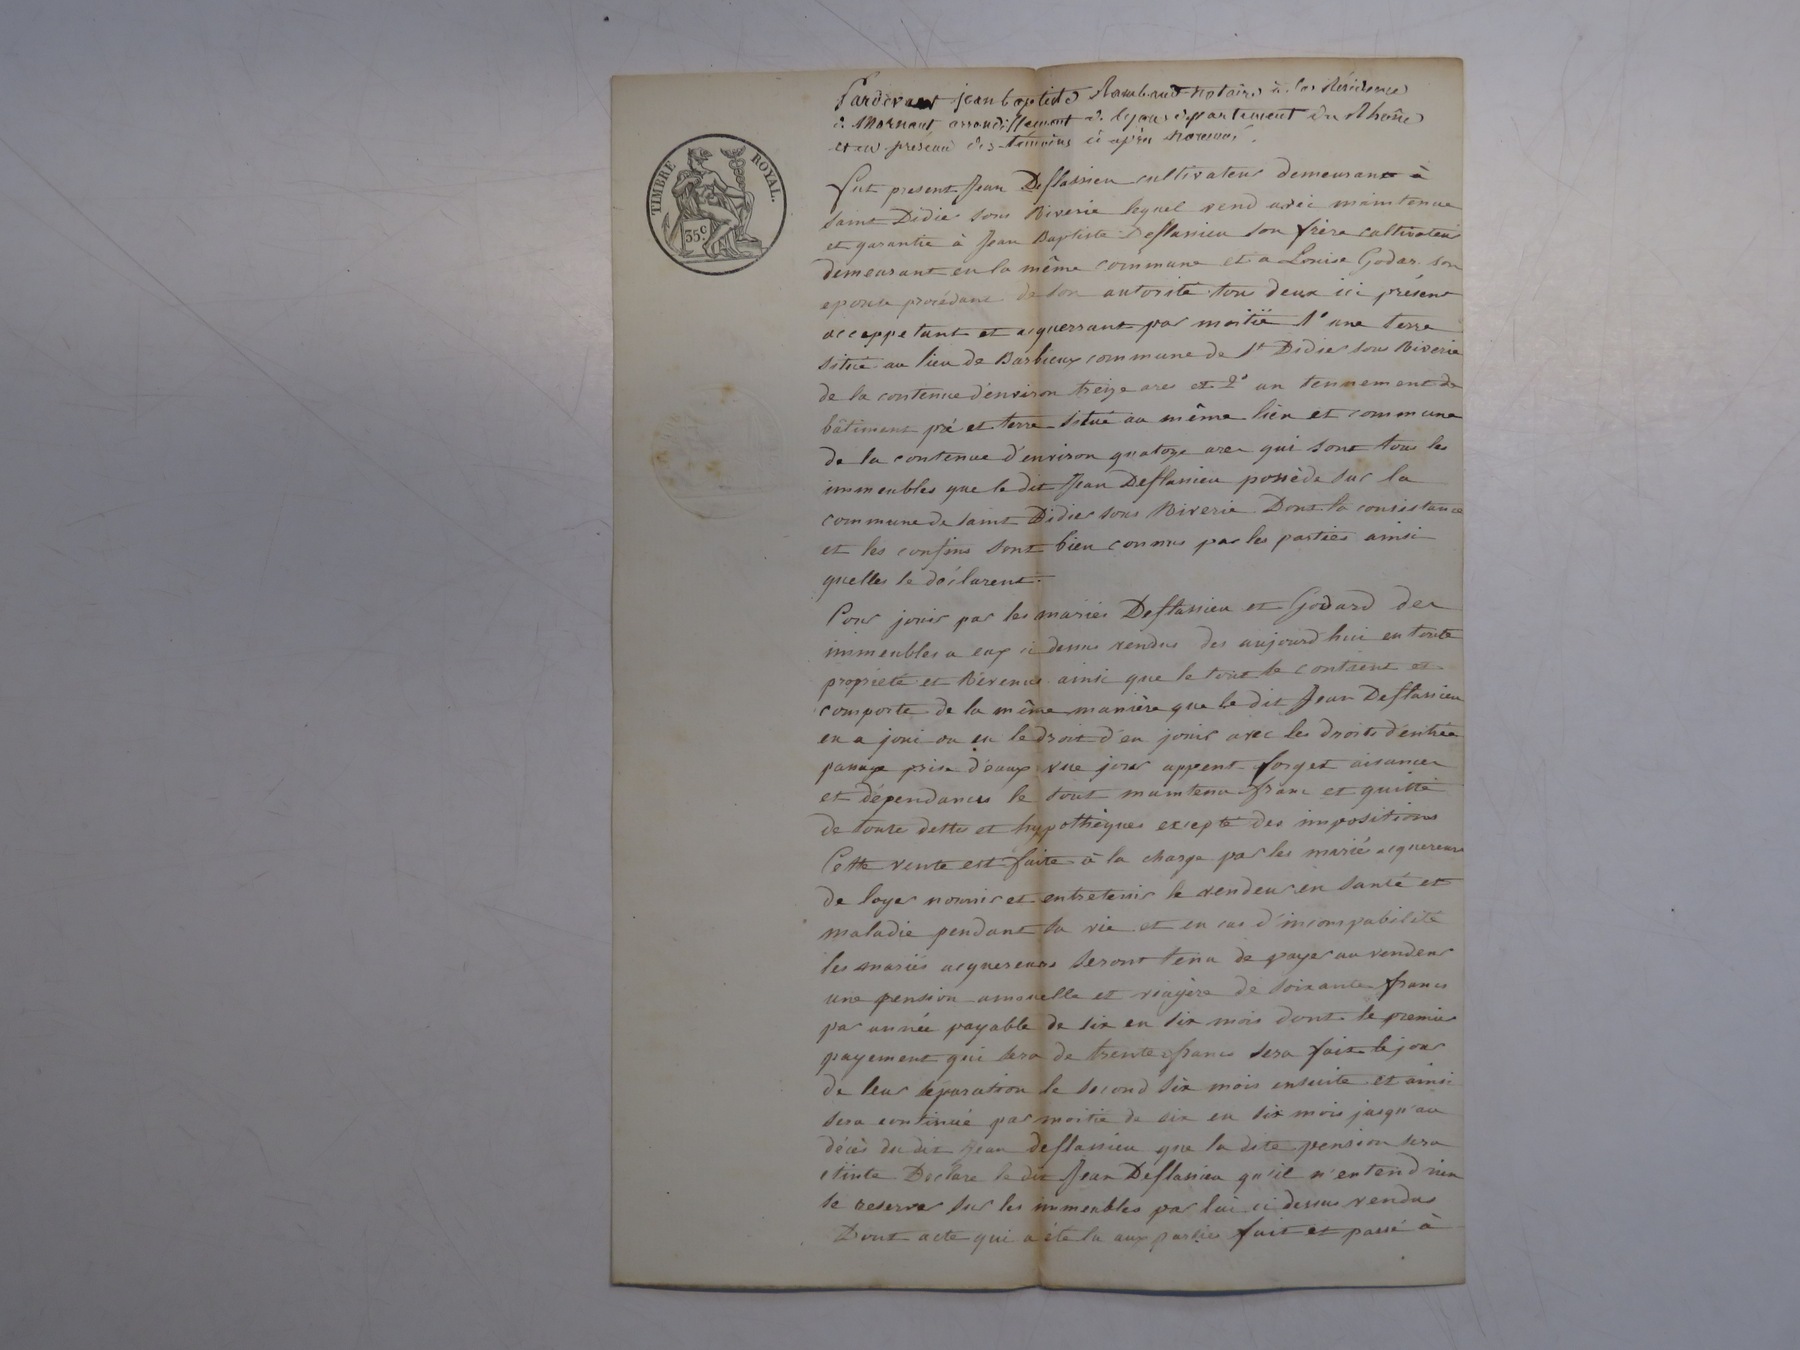 TIMBRE ROYAL
35c.
Pardevant jean baptiste notaire à la Résidence
de Mornant, arrondissement de lyon département du Rhône
et en presence des témoins ci après nommés.
fut present Jean Deflassieu cultivateur demeurant à
saint Didier sous Riverie lequel vend avec maintenue
et garantie à Jean Baptiste Deflassieu son frère cultivateur
demeurant en la même commune et a Louise Godar son
epouse procédant de son autorité tous deux ici présent
acceppetant et acquerrant par moitié 1° une terre
situé au lieu de Barbieux commune de St Didier sous Riverie
de la contenue d'environ treize ares et 2° un tennement de
bâtiment pré et terre situé au même lieu et commune
de la contenue d'environ quatoze ares qui sont tous les
immeubles que le dit Jean Deflassieu possède sur la
commune de saint Didier sous Riverie Dont la consistance
et les confins sont bien connus par les parties ainsi
quelles le déclarent.
Pour jouir par les mariés Deflassieu et Godard des
immeubles a eux ci dessus vendus des aujourd'hui en toute
propriété et Revenus ainsi que le tout se contient et
comporte de la même manière que le dit Jean Deflassieu
en a joui ou eu le droit d'en jouir avec les droits d'entrée
passage prise d'eaux vue jour appent forget aisances
et dépendances le tout maintenu franc et quitte
de toute dettes et hypothèques excepté des impositions
Cette vente est faite à la charge par les mariés acquereurs
de loger nourrir et entretenir le vendeur en santé et
maladie pendant sa vie et en cas d'incompabilité
les mariés acquereurs seront tenu de payer au vendeur
une pension annuelle et viagère de soixante francs
par année payable de six en six mois dont le premier
payement qui sera de trente francs sera fait le jour
de leur séparation le second six mois ensuite et ainsi
sera continué par moitié de six en six mois jusqu'au
décès du dit Jean deflassieu que la dite pension sera
etinte Déclare le dit Jean Deflassieu qu'il n'entend rien
se reserver sur les immeubles par lui ci dessus vendus
Dont acte qui a été lu aux parties fait et passé à